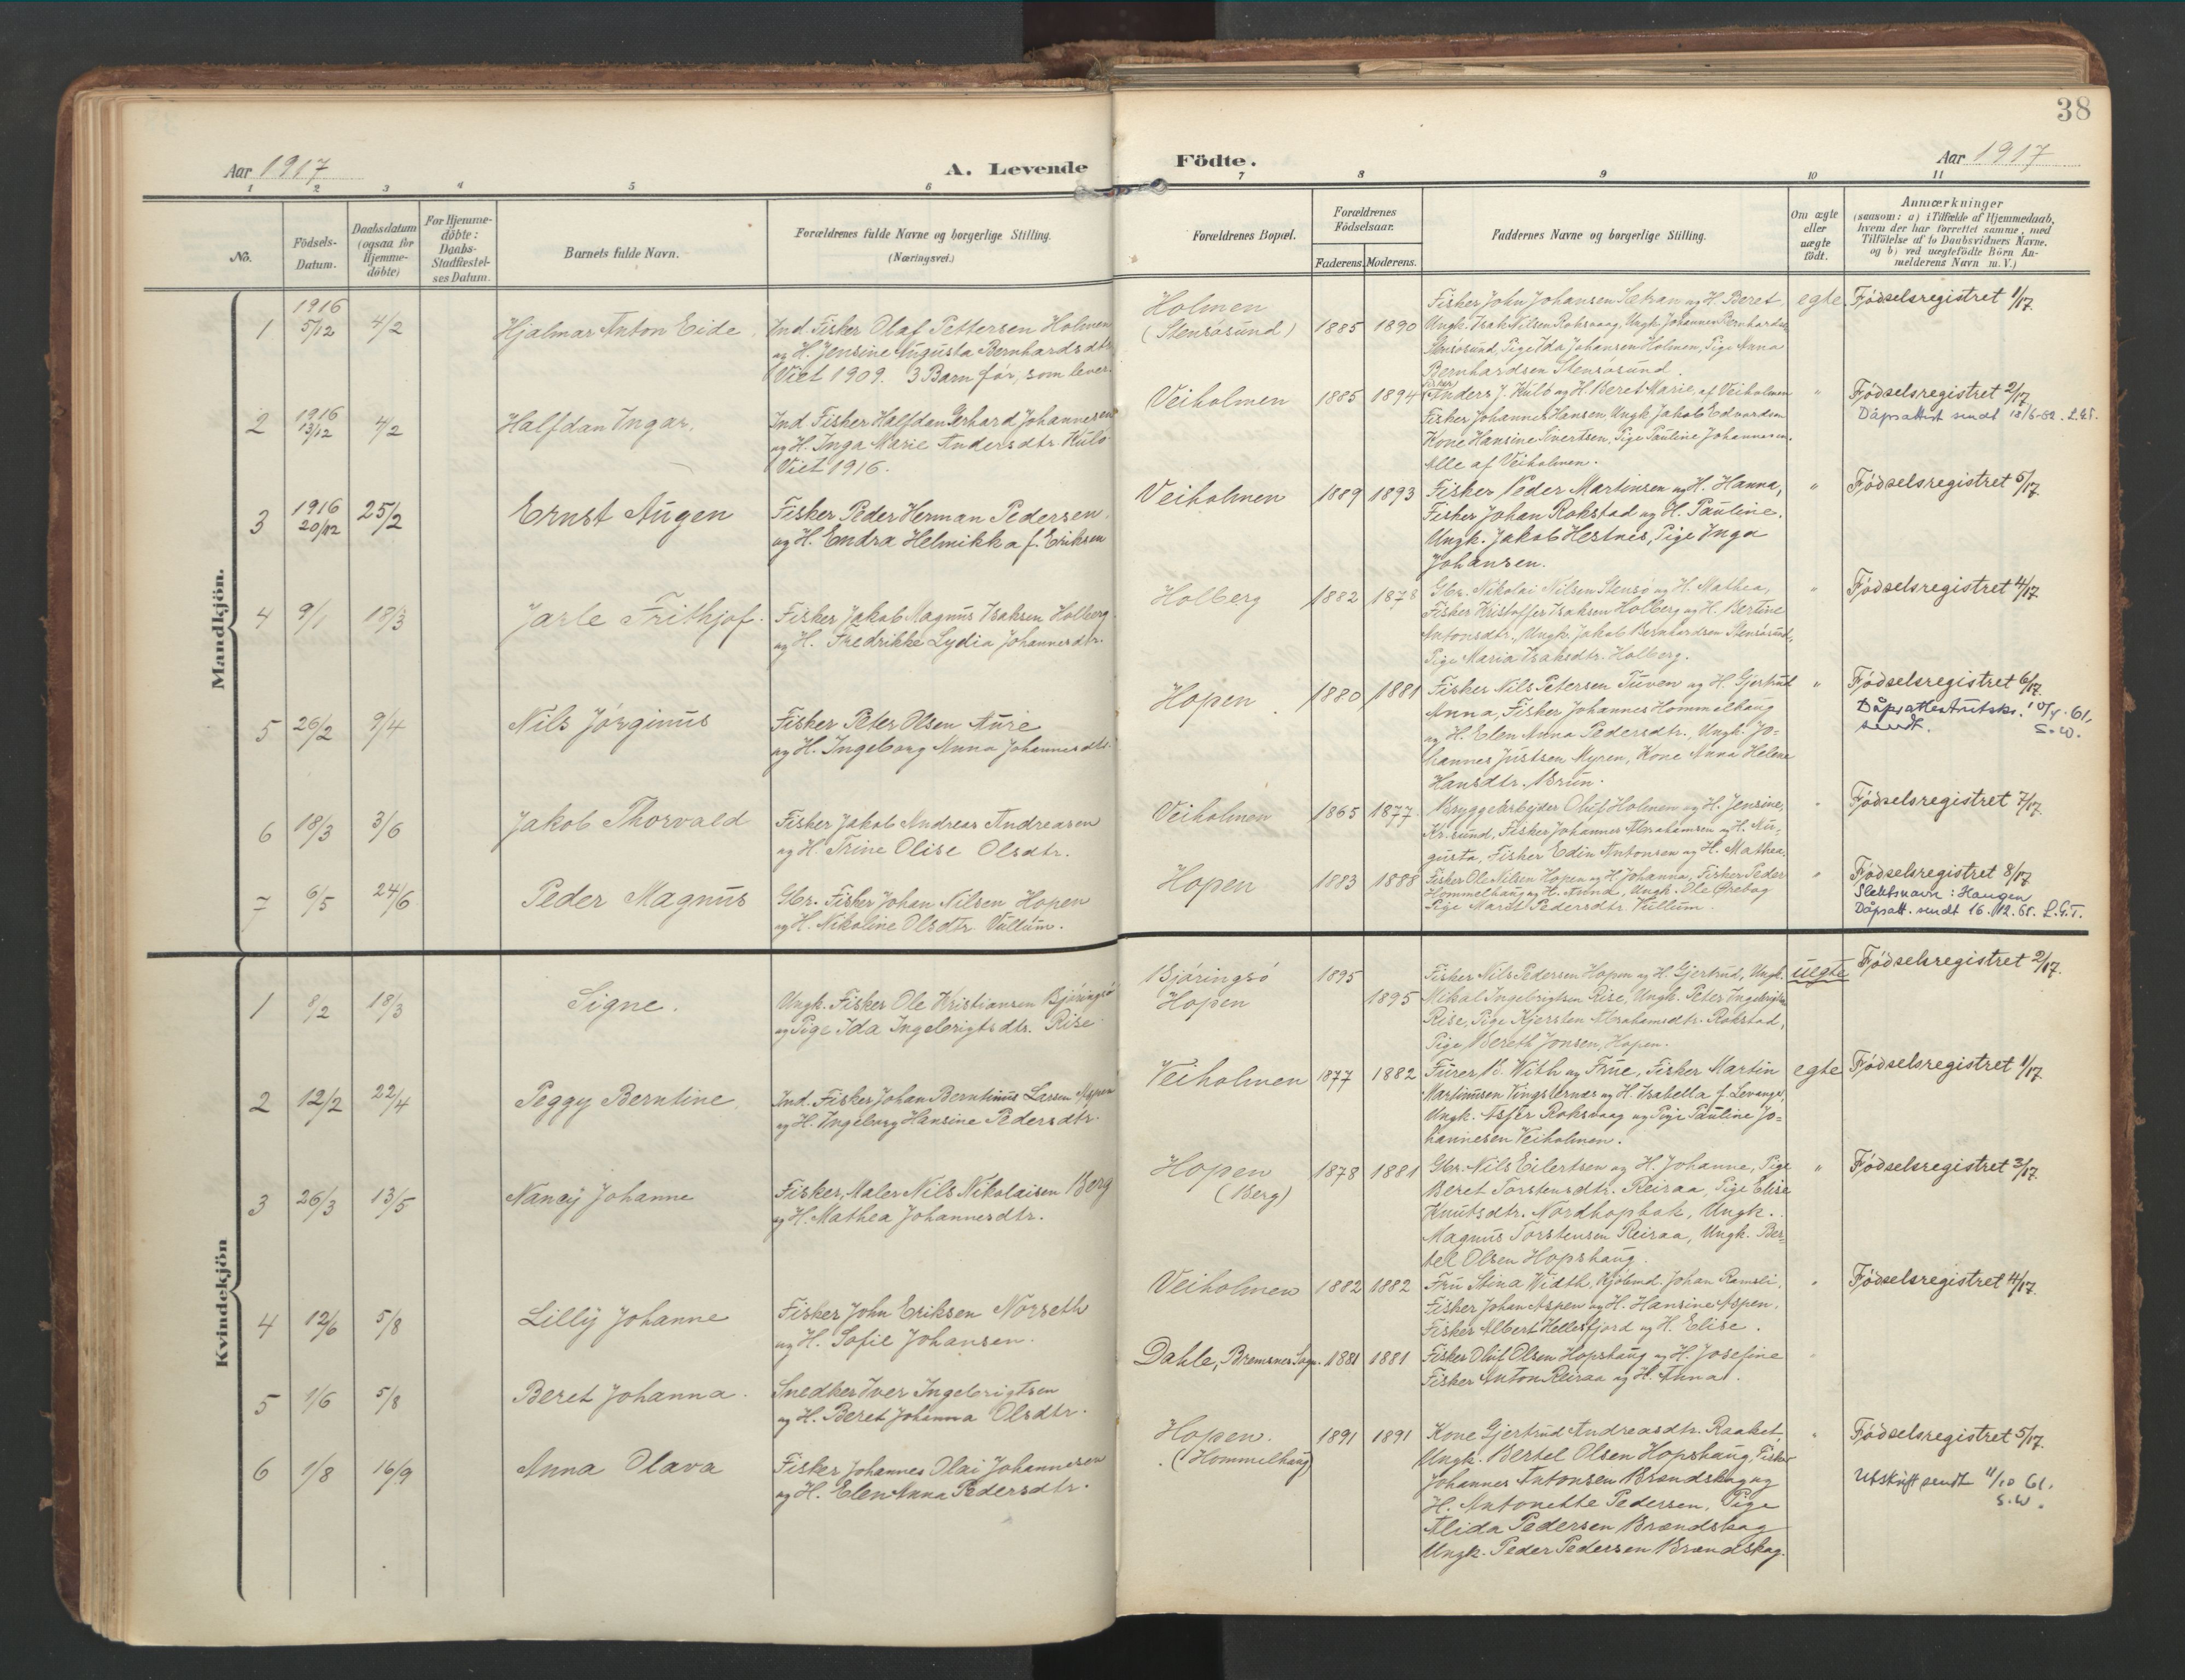 38
Aar 1917
A. Levende
Födte.
Aar 1917
1 2 3 4 5 6 7 8 9 10 11
No.
Födsels-
Datum.
Daabsdatum
(ogsaa for
Hjemme-
döbte)
For Hjemme-
döbte:
Daabs-
Stadfæstel-
ses Datum.
Barnets fulde Navn.
Forældrenes fulde Navne og borgerlige Stilling.
(Næringsvei.)
Forældrenes Bopæl.
Forældrenes
Födselsaar.
Faderens. Moderens.
Faddernes Navne og borgerlige Stilling.
Om ægte
eller
uægte
födt.
Anmærkninger
(saasom: a) i Tilfælde af Hjemmedaab,
hvem der har forrettet samme, med
Tilföielse af to Daabsvidners Navne,
og b) ved uægtefödte Börn An-
melderens Navn m. V.)
Mandkjön.
1 1916 5/12 4/2 Hjalmar Anton Eide.
Ind. Fisker Olaf Pettersen Holmen
og H. Jensine Augusta Bernhardsdtr.
Viet 1909. 3 Barn før, som lever.
Holmen
(Stensøsund) 1885 1890
Fisker John Johansen Sætran og H. Beret,
Ungk. Isak Nilsen Roksvaag, Ungk. Johannes Bernhardsen
Stensøsund, Pige Ida Johansen Holmen, Pige Anna
Bernhardsen Stensøsund.
egte Fødselsregistret 1/17.
2 1916 13/12 4/2 Halfdan Ingar.
Ind. Fisker Halfdan Gerhard Johannesen
og H. Inga Marie Andersdtr. Kulø
Viet 1916.
Veiholmen 1885 1894
Fisker Anders J. Kulø og H. Beret Marie, af Veiholmen
Fisker Johannes Hansen, Ungk. Jakob Edvardsen
Kone Hansine Sivertsen, Pige Pauline Johannesen.
Alle af Veiholmen.
" Fødselsregistret 2/17.
Dåpsattest sendt 18/6-52. L.G.T.
3 1916 20/12 25/2 Ernst Augen
Fisker Peder Herman Pedersen
og H. Endra Helmikka f. Eriksen
Veiholmen 1889 1893
Fisker Peder Martinsen og H. Hanna,
Fisker Johan Rokstad og H. Pauline,
Ungk. Jakob Hestnes, Pige Inga
Johansen.
" Fødselsregistret 5/17.
4 9/1 18/3 Jarle Frithjof.
Fisker Jakob Magnus Isaksen Holberg
og H. Fredrikke Lydia Johannesdtr.
Holberg 1882 1878
Gbr. Nikolai Nilsen Stensø og H. Mathea,
Fisker Kristoffer Isaksen Holberg og H. Bertine
Antonsdtr., Ungk. Jakob Bernhardsen Stensøsund,
Pige Maria Isaksdtr. Holberg.
" Fødselsregistret 4/17.
5 26/2 9/4 Nils Jørginus
Fisker Peter Olsen Aure
og H. Ingeborg Anna Johannesdtr.
Hopen. 1880 1881
Fisker Nils Petersen Tuven og H. Gjertrud
Anna, Fisker Johannes Hommelhaug
og H. Elen Anna Pedersdtr., Ungk. Jo-
hannes Justsen Myren, Kone Anna Helene
Hansdtr. Brun.
" Fødselsregistret 6/17.
Dåpsattestutskr.
sendt. 61.
S.W.
6 18/3 3/6 Jakob Thorvald
Fisker Jakob Andreas Andreasen
og H. Trine Olise Olsdtr.
Veiholmen 1865 1877
Bryggearbeider Oluf Holmen og H. Jensine,
Kr.sund, Fisker Johannes Abrahamsen og H. Au-
gusta, Fisker Edin Antonsen og H. Mathea.
" Fødselsregistret 7/17.
7 6/5 24/6 Peder Magnus
Gbr. Fisker Johan Nilsen Hopen
og H. Nikoline Olsdtr. Vullum.
Hopen 1883 1888
Fisker Ole Nilsen Hopen og H. Johanna, Fisker Peder
Hommelhaug og H. Anna, Ungk. Ole Ørebog
Pige Marit Pedersdtr. Vullum.
" Fødselsregistret 8/17
Slektsnavn: Haugen
Dåpsatt. sendt 16.12.65. L.G.T.
Kvindekjön
1 8/2 18/3 Signe.
Ungk. Fisker Ole Kristiansen Bjøringsø
og Pige Ida Ingebrigtsdtr. Rise
Bjøringsø 1895
Hopen 1895
Fisker Nils Pedersen Hopen og H. Gjertrud, Ungk.
Mikal Ingebrigtsen Rise, Ungk. Peter Ingebrigtsen
Rise, Pige Kjersten Abrahamsdtr. Rokstad,
Pige Bereth Jonsen, Hopen.
uegte Fødselsregistret 2/17.
2 12/2 22/4 Peggy Berntine.
Ind. Fisker Johan Berntinus Larsen Aspen
og H. Ingeborg Hansine Pedersdtr.
Veiholmen 1877 1882
Furer B. With og Frue, Fisker Martin
Martinusen Vingsternes og H. Isabella f. Levanger,
Ungk. Asfer Roksvaag og Pige Pauline Jo-
hannesen Veiholmen.
egte Fødselsregistret 1/17.
3 26/3 13/5 Nancy Johanne
Fisker, Maler Nils Nikolaisen Berg
og H. Mathea Johannesdtr.
Hopen
(Berg) 1878 1881
Gbr. Nils Eilertsen og H. Johanne, Pige
Beret Torstensdtr. Reiraa, Pige Elise
Knutsdtr. Nordhopbak, Ungk.
Magnus Torstensen Reiraa, Ungk. Ber-
tel Olsen Hopshaug.
" Fødselsregistret 3/17.
4 12/6 5/8 Lilly Johanne
Fisker John Eriksen Norseth
og H. Sofie Johansen.
Veiholmen 1882 1882
Fru Stina Width, Kjøbmd. Johan Ramsli,
Fisker Johan Aspen og H. Hansine Aspen,
Fisker Albert Hellesfjord og H. Elise.
" Fødselsregistret 4/17.
5 1/6 5/8 Beret Johanna.
Snedker Iver Ingebrigtsen
og H. Beret Johanna Olsdtr.
Dahle, Bremsnes Sogn. 1881 1881
Fisker Oluf Olsen Hopshaug og H. Josefine
Fisker Anton Reiraa og H. Anna.
6 1/8 16/9 Anna Olava
Fisker Johannes Olai Johannesen
og H. Elen Anna Pedersdtr.
Hopen.
(Hommelhaug) 1891 1891
Kone Gjertrud Andreasdtr. Raaket,
Ungk. Bertel Olsen Hopshaug, Fisker
Johannes Antonsen Brandskag og
H. Antonette Pedersen, Pige
Alida Pedersen Brandskag
Ungk. Peder Pedersen Brandskag.
" Fødselsregistret 5/17.
Utskrift sendt 11/10 61.
S.W.